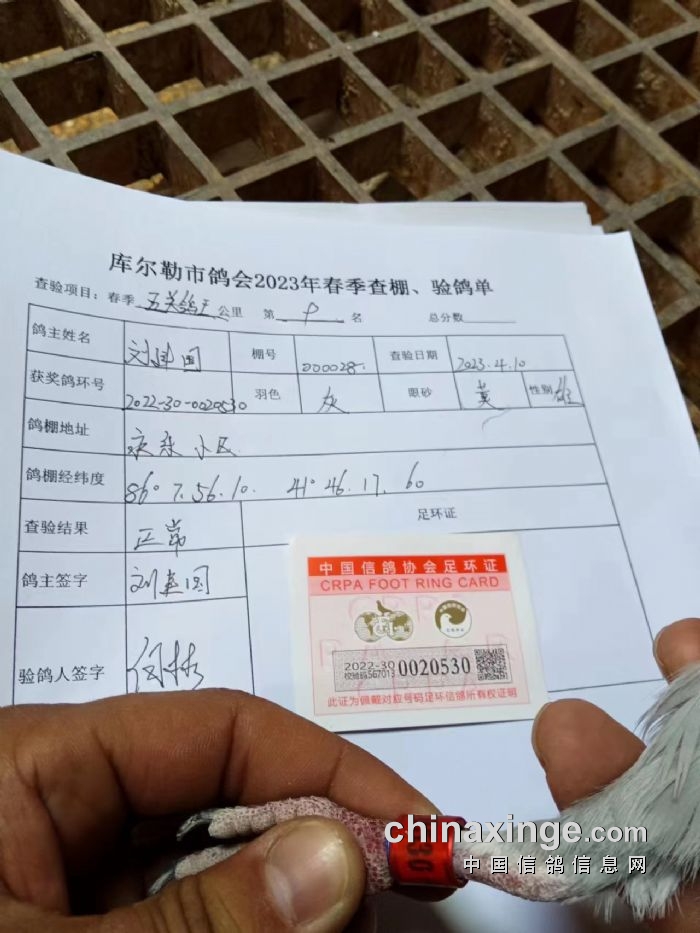 库尔勒市鸽会2023年春季查棚、验鸽单
查验项目：春季 五关鸽王 公里 第 十 名 总分数
鸽主姓名 刘建国 棚号 000028. 查验日期 2023.4.10
获奖鸽环号 2022-30-0020530 羽色 灰 眼砂 黄 性别 雄
鸽棚地址 小区
鸽棚经纬度 86° 7.56.10. 41° 46.17.60
查验结果 正常 足环证
鸽主签字 刘建国
验鸽人签字
中国信鸽协会足环证
CRPA FOOT RING CARD
2022-30 0020530
校验码567013
此证为佩戴对应号码足环信鸽所有权证明
30
chinaxinge.com
中国信鸽信息网